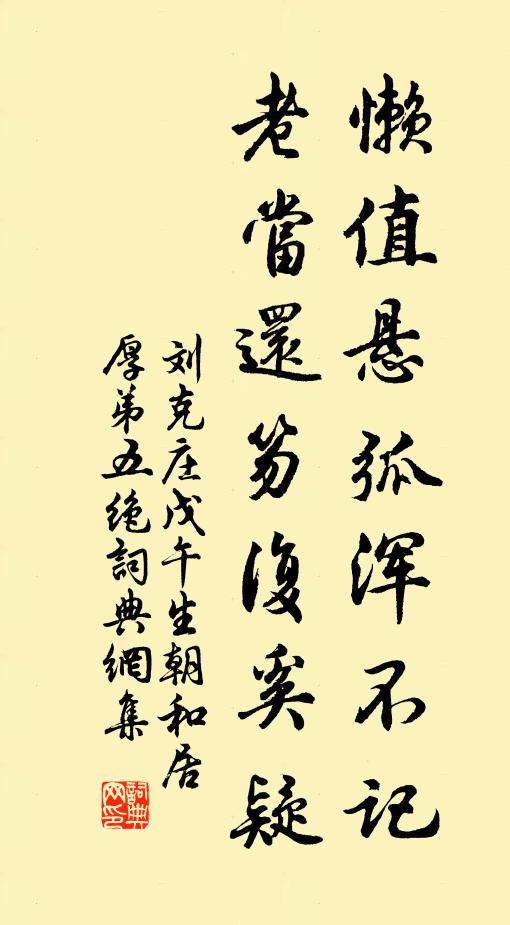 懒值悬弧浑不记
老當還笏復奚疑
刘克庄戊午生朝和居
厚弟五绝詞典網集
詞典网印